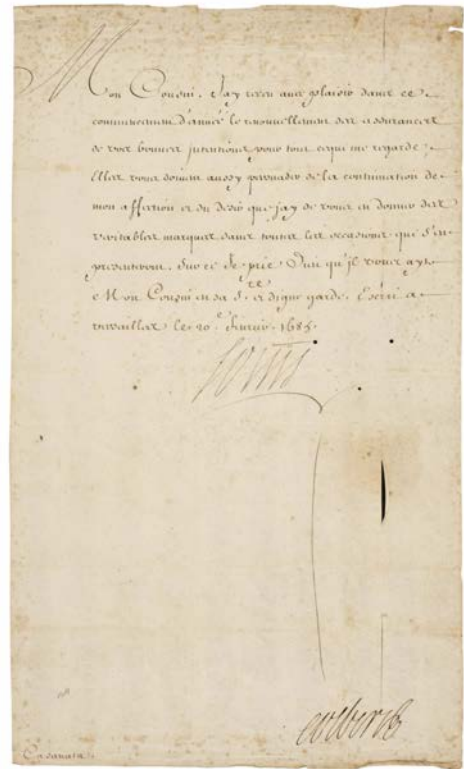 Mon Cousin. J'ay receu avec plaisir dans ce
commencement d'année le renouvellement des asseurances
de vos bonnes intentions pour tout ce qui me regarde;
Mais vous devez aussy
de la continuation de
mon affection et du desir que j'ay de vous en donner des
veritables marques dans toutes les occasions qui s'en
presenteront. Sur ce Je prie Dieu qu'il vous ayt
Mon Cousin en sa S.te et digne garde. Escrit a
Versailles le 20.e Février 1685.
Louis
Colbert